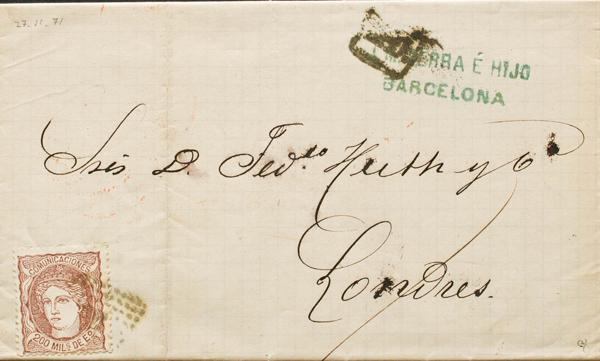 27-11-71
SERRA É HIJO
BARCELONA
Sres D. Fedco Huth y Ca
Londres.
COMUNICACIONES
200 MILS DE EO.